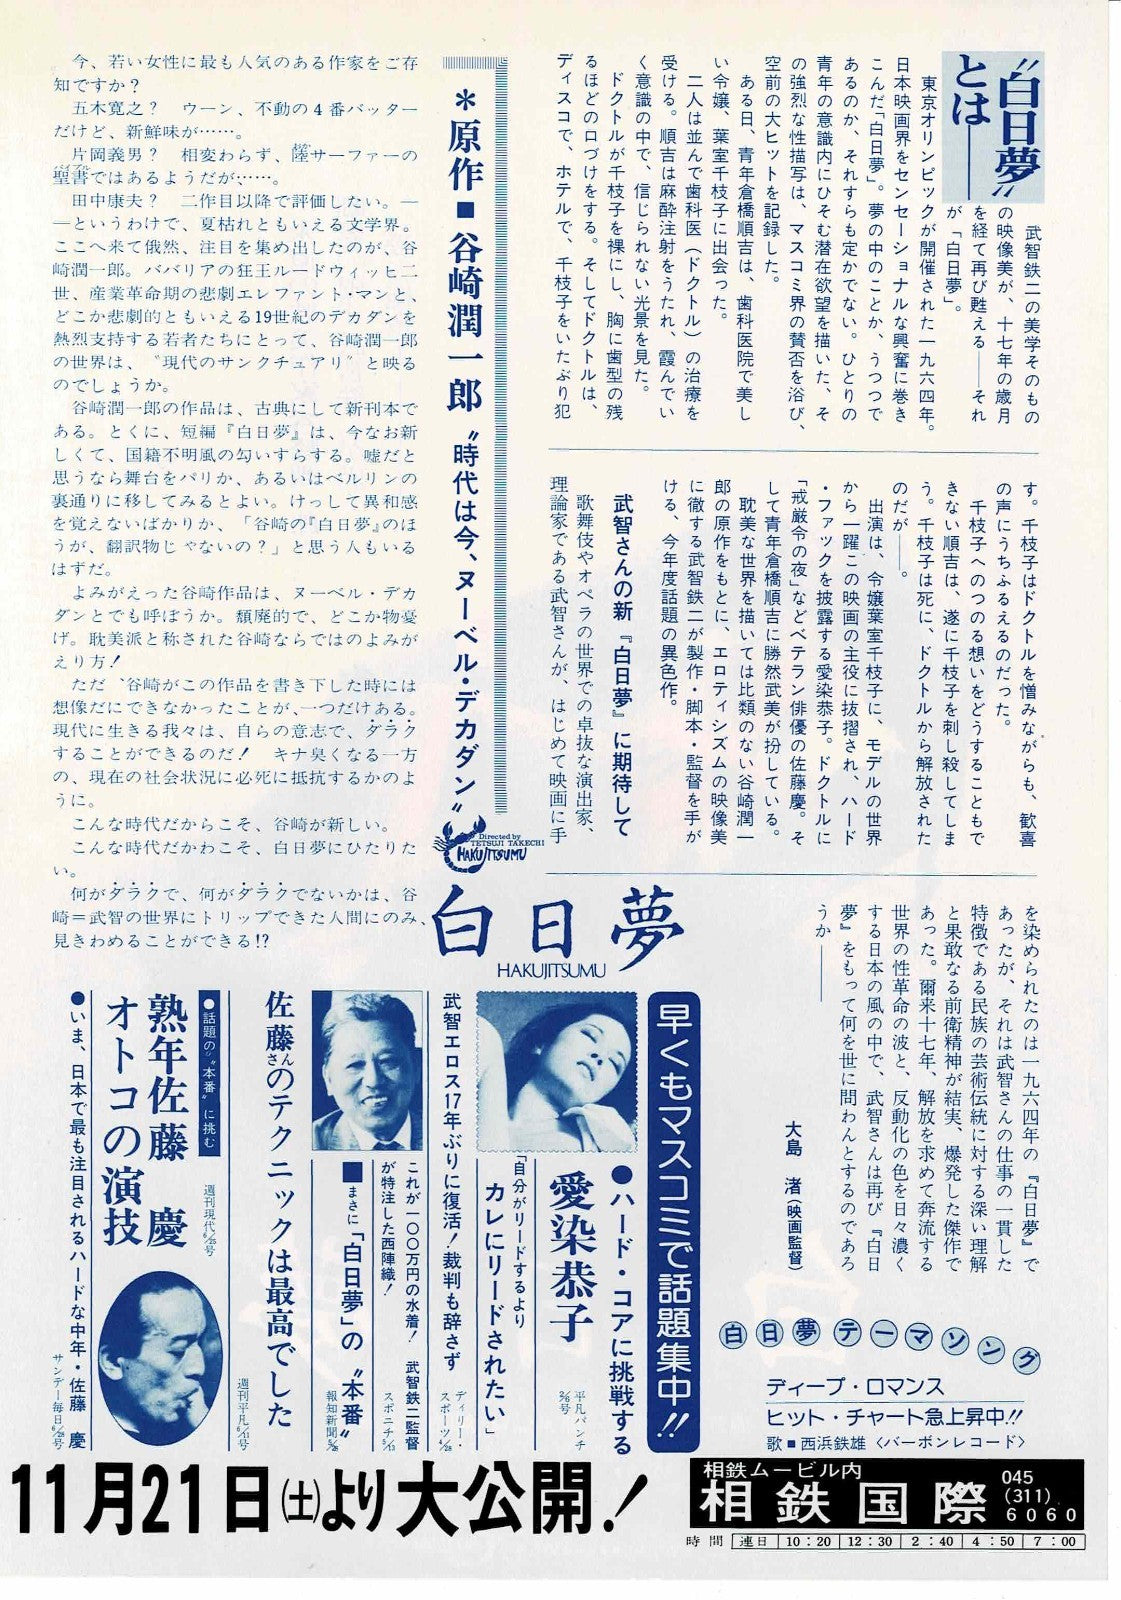 〝白日夢〟
とは――
武智鉄二の美学そのもの
の映像美が、十七年の歳月
を経て再び甦える――それ
が「白日夢」。
東京オリンピックが開催された一九六四年。
日本映画界をセンセーショナルな興奮に巻き
こんだ「白日夢」。夢の中のことか、うつつで
あるのか、それすらも定かでない。ひとりの
青年の意識内にひそむ潜在欲望を描いた、そ
の強烈な性描写は、マスコミ界の賛否を浴び、
空前の大ヒットを記録した。
ある日、青年倉橋順吉は、歯科医院で美し
い令嬢、葉室千枝子に出会った。
二人は並んで歯科医（ドクトル）の治療を
受ける。順吉は麻酔注射をうたれ、霞んでい
く意識の中で、信じられない光景を見た。
ドクトルが千枝子を裸にし、胸に歯型の残
るほどの口づけをする。そしてドクトルは、
ディスコで、ホテルで、千枝子をいたぶり犯
す。千枝子はドクトルを憎みながらも、歓喜
の声にうちふるえるのだった。
千枝子へのつのる想いをどうすることもで
きない順吉は、遂に千枝子を刺し殺してしま
う。千枝子は死に、ドクトルから解放された
のだが――。
出演は、令嬢葉室千枝子に、モデルの世界
から一躍この映画の主役に抜擢され、ハード
・ファックを披露する愛染恭子。ドクトルに
「戒厳令の夜」などベテラン俳優の佐藤慶。そ
して青年倉橋順吉に勝然武美が扮している。
耽美な世界を描いては比類のない谷崎潤一
郎の原作をもとに、エロティシズムの映像美
に徹する武智鉄二が製作・脚本・監督を手が
ける、今年度話題の異色作。
武智さんの新『白日夢』に期待して
歌舞伎やオペラの世界での卓抜な演出家、
理論家である武智さんが、はじめて映画に手
を染められたのは一九六四年の『白日夢』で
あったが、それは武智さんの仕事の一貫した
特徴である民族の芸術伝統に対する深い理解
と果敢なる前衛精神が結実、爆発した傑作で
あった。爾来十七年、解放を求めて奔流する
世界の性革命の波と、反動化の色を日々濃く
する日本の風の中で、武智さんは再び『白日
夢』をもって何を世に問わんとするのであろ
うか――
大島 渚（映画監督）
＊原作■谷崎潤一郎〝時代は今、ヌーベル・デカダン〟
今、若い女性に最も人気のある作家をご存
知ですか？
五木寛之？ ウーン、不動の4番バッター
だけど、新鮮味が……。
片岡義男？ 相変わらず、陸サーファーの
聖書ではあるようだが、……。
田中康夫？ 二作目以降で評価したい。―
―というわけで、夏枯れともいえる文学界。
ここへ来て俄然、注目を集め出したのが、谷
崎潤一郎。ババリアの狂王ルードウィッヒ二
世、産業革命期の悲劇エレファント・マンと、
どこか悲劇的ともいえる19世紀のデカダンを
熱烈支持する若者たちにとって、谷崎潤一郎
の世界は、〝現代のサンクチュアリ〟と映る
のでしょうか。
谷崎潤一郎の作品は、古典にして新刊本で
ある。とくに、短編『白日夢』は、今なお新
しくて、国籍不明風の匂いすらする。嘘だと
思うなら舞台をパリか、あるいはベルリンの
裏通りに移してみるとよい。けっして異和感
を覚えないばかりか、「谷崎の『白日夢』のほ
うが、翻訳物じゃないの？」と思う人もいる
はずだ。
よみがえった谷崎作品は、ヌーベル・デカ
ダンとでも呼ぼうか。頽廃的で、どこか物憂
げ。耽美派と称された谷崎ならではのよみが
えり方！
ただ〝谷崎がこの作品を書き下した時には
想像だにできなかったことが、一つだけある。
現代に生きる我々は、自らの意志で、ダラク
することができるのだ！ キナ臭くなる一方
の、現在の社会状況に必死に抵抗するかのよ
うに。
こんな時代だからこそ、谷崎が新しい。
こんな時代だかわこそ、白日夢にひたりた
い。
何がダラクで、何がダラクでないかは、谷
崎＝武智の世界にトリップできた人間にのみ、
見きわめることができる!?
Directed by
TETSUJI TAKECHI
HAKUJITSUMU
白日夢
HAKUJITSUMU
早くもマスコミで話題集中!!
●ハード・コアに挑戦する
愛染恭子
平凡パンチ
「自分がリードするより
カレにリードされたい」
武智エロス17年ぶりに復活！裁判も辞さず
デイリー・
スポーツ4/28
これが一〇〇万円の水着！ 武智鉄二監督
が特注した西陣織！
スポニチ5/13
■まさに「白日夢」の〝本番〟
報知新聞5/28
佐藤さんのテクニックは最高でした
週刊平凡6/11号
●話題の〝本番〟に挑む
熟年佐藤 慶
オトコの演技
週刊現代6/25号
●いま、日本で最も注目されるハードな中年・佐藤 慶
サンデー毎日6/28号
白日夢テーマソング
ディープ・ロマンス
ヒット・チャート急上昇中!!
歌■西浜鉄雄〈バーボンレコード〉
11月21日(土)より大公開！
相鉄ムービル内
相鉄国際
045
(311)
6060
時間 連日 10：20 12：30 2：40 4：50 7：00